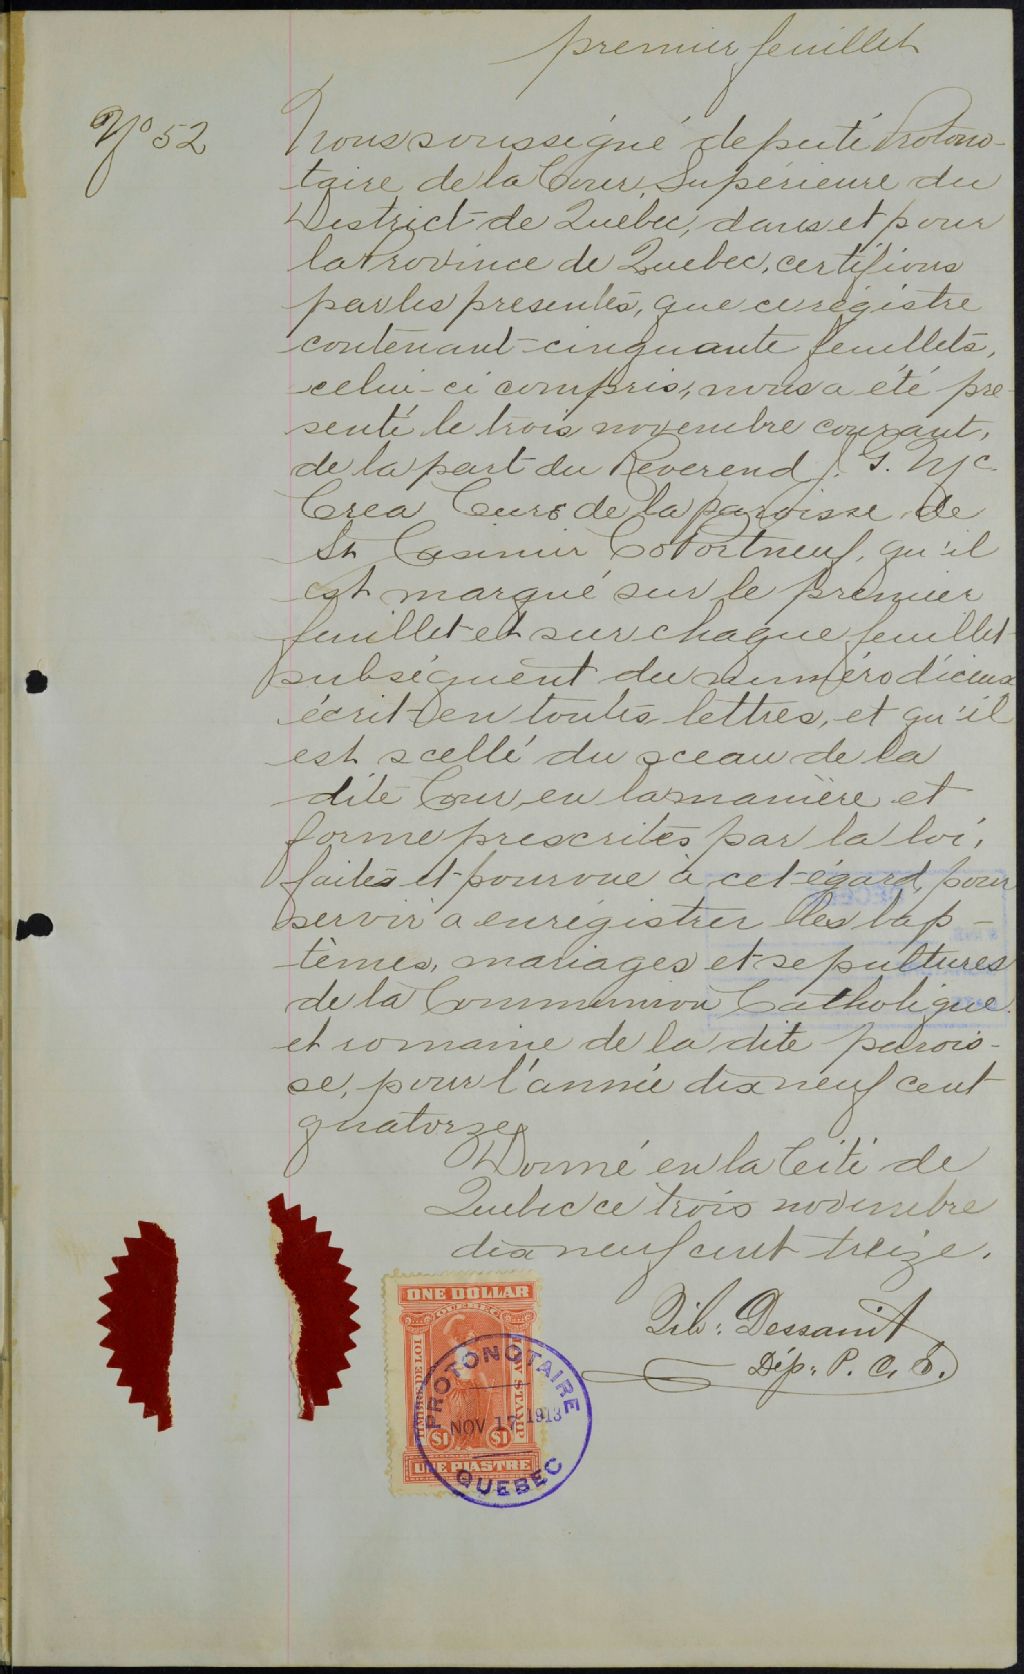 premier feuillet
No 52
Nous soussigné député Protono-
taire de la Cour Supérieure du
District de Québec, dans et pour
la Province de Quebec, certifions
par les presentes, que ce régistre
contenant cinquante feuillets,
celui-ci compris, nous a été pre
senté le trois novembre courant,
de la part du Reverend J. G. Mc
Crea Curé de la paroisse de
St Casimir Co Portneuf, qu'il
est marqué sur le premier
feuillet et sur chaque feuillet
subséquent du numéro d'iceux
écrit en toutes lettres, et qu'il
est scellé du sceau de la
dite Cour en la manière et
forme prescrites par la loi,
faites et pourvue à cet égard, pour
servir a enrégistrer les bap-
têmes, mariages et sepultures
de la Communion Catholique
et romaine de la dite parois-
se, pour l'année dix neuf cent
quatorze
Donné en la Cité de
Quebec ce trois novembre
dix neuf cent treize.
Dép. P. C. S.
ONE DOLLAR
QUEBEC
TIMBRE DE LOI
LAW STAMP
$1 $1
UNE PIASTRE
PROTONOTAIRE
NOV 17 1913
QUEBEC